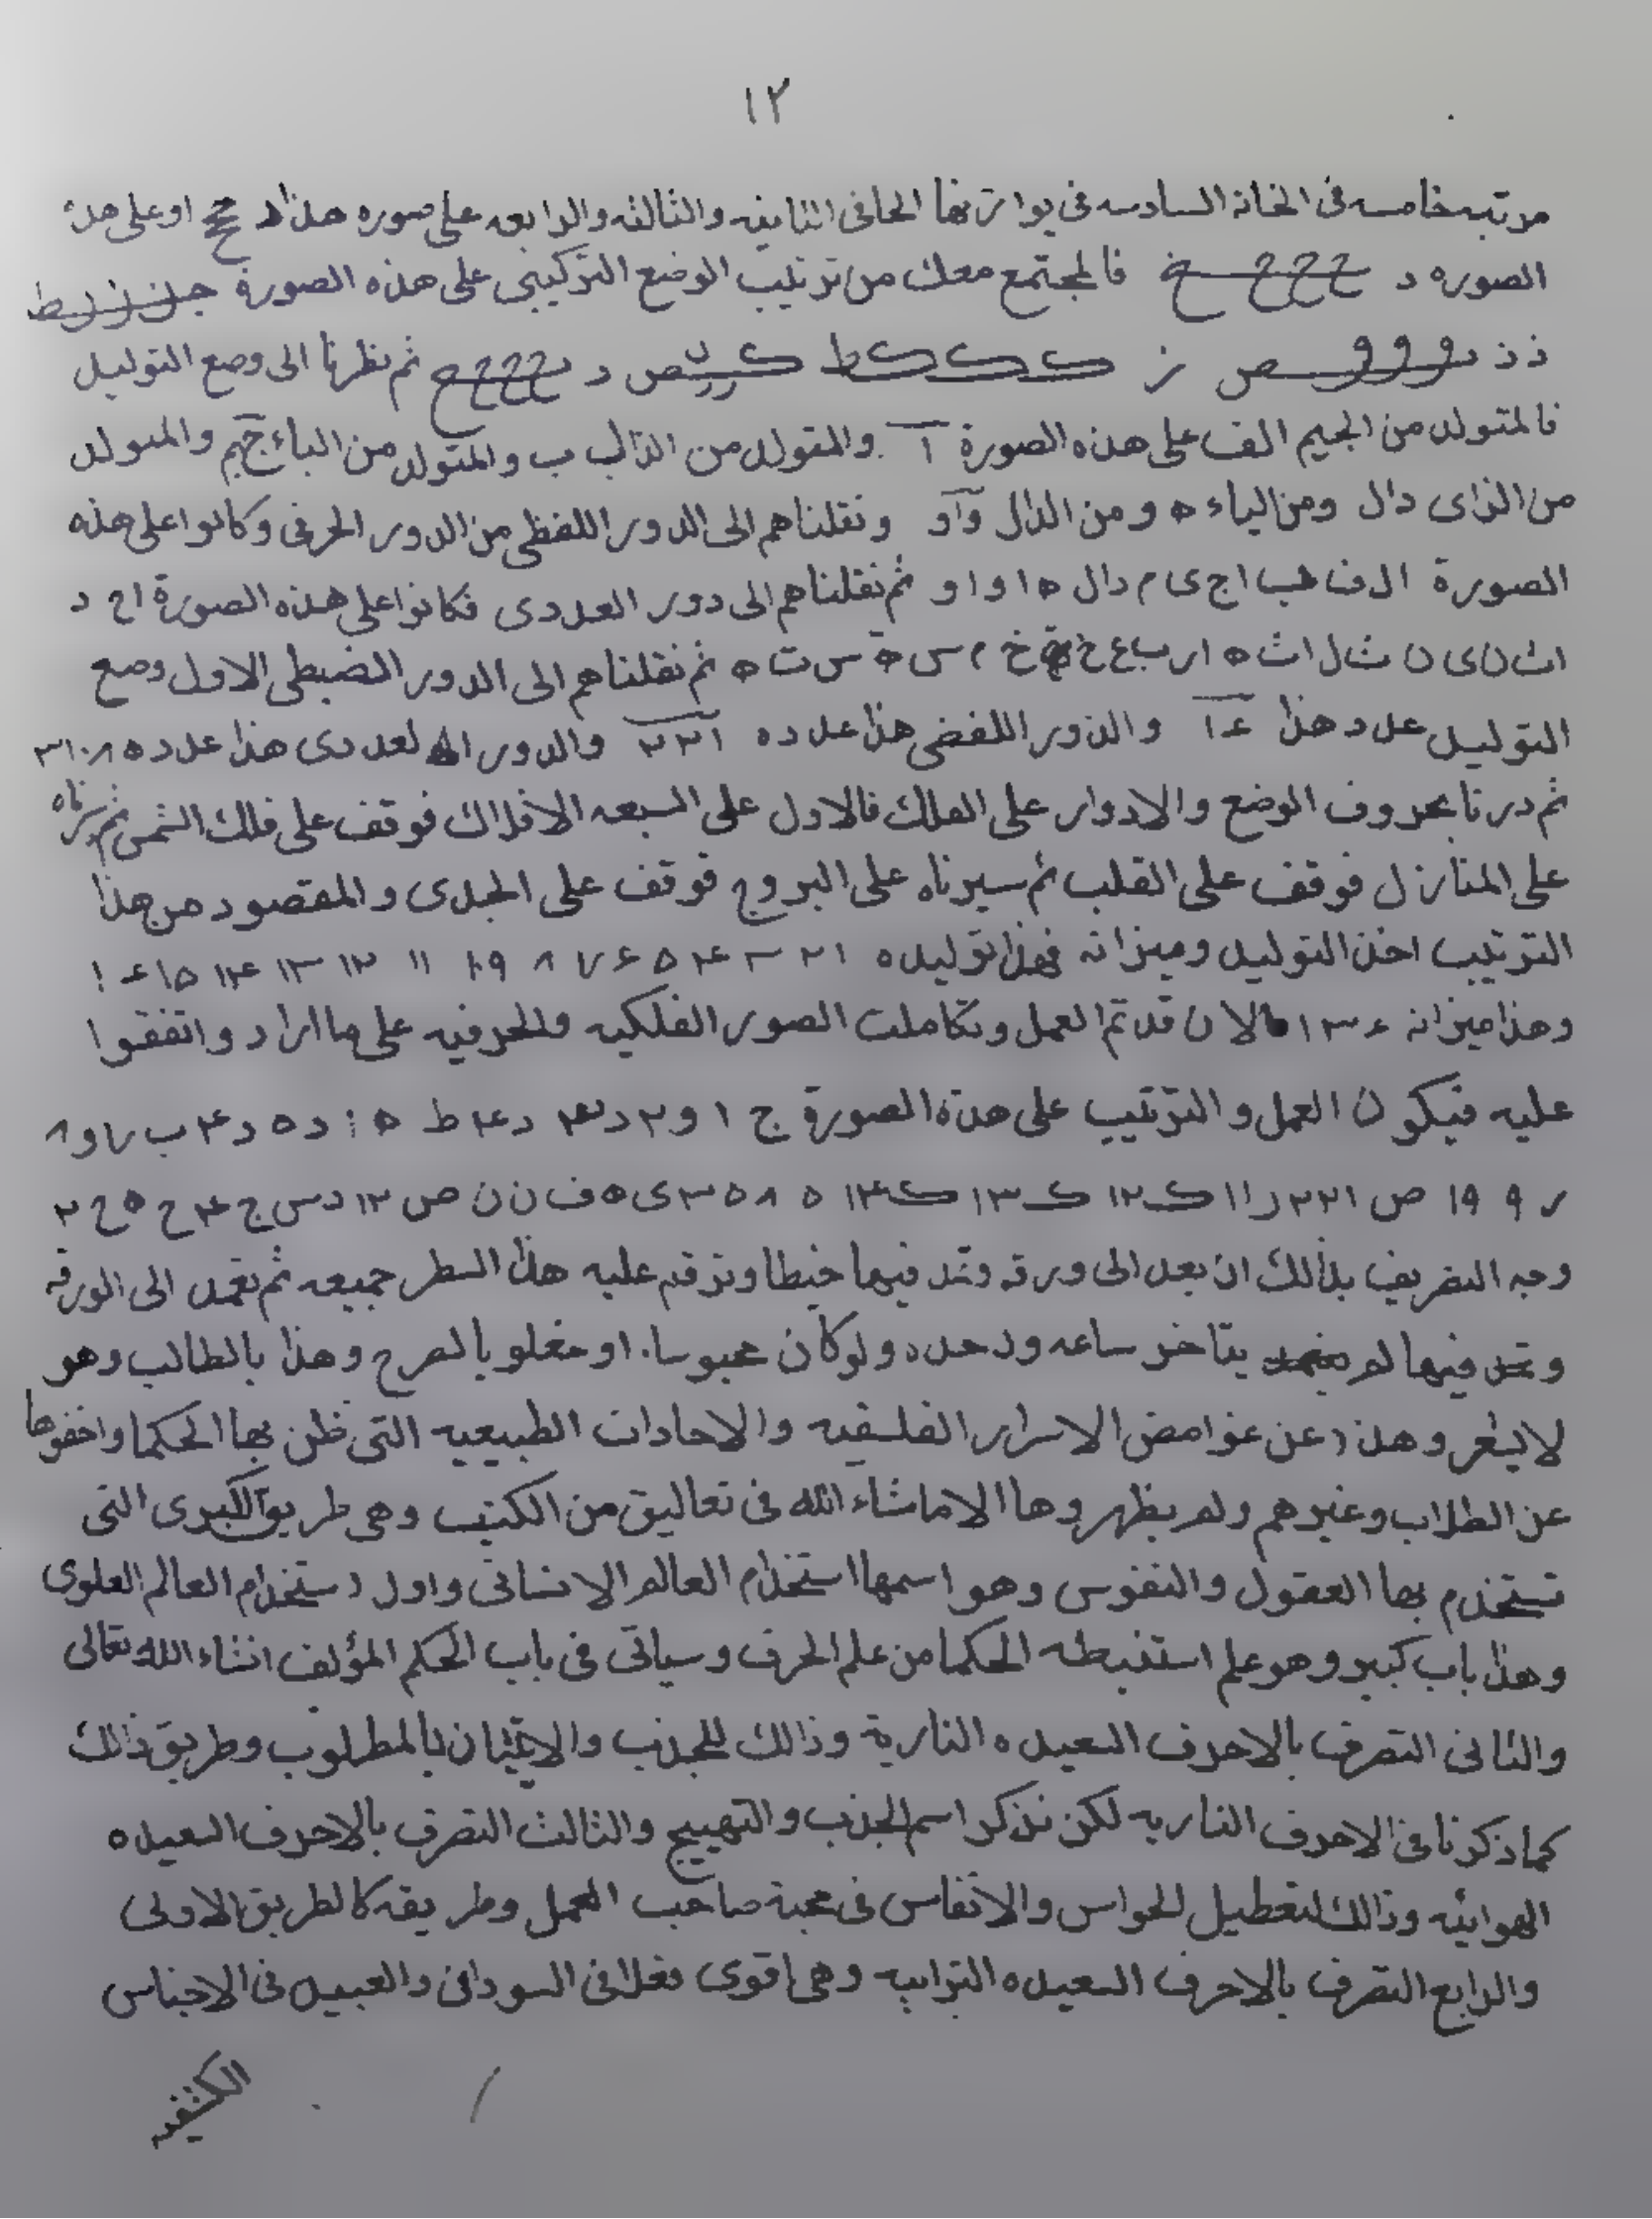 ١٢
مرتبه خامسه فى الخانة السادسه فى يوازنها الحافى الثانيه والثالثه والرابعه على صوره هذا د اوعلى هذه
الصوره د ححح خ فالمجتمع معك من ترتيب الوضع التركيبى على هذه الصورة
ذ ذ ص ز د حححح ثم نظرنا الى وضع التوليد
فالمتولد من الجيم الف على هذه الصورة آ والمتولد من الذال ب والمتولد من الباء جيم والمتولد
من الزاى دال ومن الياء ه ومن الدال وآو ونقلناهم الى الدور اللفظى من الدور الحرفى وكانوا على هذه
الصورة ال ف ب ا ج ى م دال ه ا و ا و ثم نقلناهم الى دور العددى فكانوا على هذه الصورة اح د
اث ن ى ن ث ل اث ه ا ر ب ع خ م س ه س ت ه ثم نقلناهم الى الدور الضبطى الاول وضع
التوليد عدد هذا ١٤ والدور اللفضى هذا عدده ٢٢١ والدور لعددى هذا عدده ٣١٠٨
ثم درنا بحروف الوضع والادوار على الفلك فالاول على السبعه الافلاك فوقف على فلك الشمس ثم سيرناه
على المنازل فوقف على القلب ثم سيرناه على البروج فوقف على الجدى والمقصود من هذا
الترتيب اخذ التوليد وميزانه فهذا توليده ١ ٢ ٣ ٤ ٥ ٦ ٧ ٨ ٩ ١٠ ١١ ١٢ ١٣ ١٤ ١٥ ١٦
وهذا ميزانه ١٣٦ فالان قد تم العمل وتكاملت الصور الفلكيه والحرفيه على ما اراد واتفقوا
عليه فيكون العمل والترتيب على هذه الصورة ج ١ و ٢ د ٣ د ٤ ط ه د ٥ د ٤ ب ٧ و ٨
ر ٩ ١٩ ص ٢٢١ ر ١١ ك ١٢ ك ١٣ ك ١٤ ٥ ٨ ٥ ٣ ى ه ف ن ن ص ١٢ د س ج ٤ ح ٥ ح ٢
وجه التصريف بذالك ان تعد الى ورقه وتمد فيها خيطا وترقم عليه هذا السطر جميعه ثم تعمد الى الورقه
فيها لم يتاخر ساعه ولو كان محبوسا او مغلوبا بالصرح وهذا بالطالب وهو
لا ليغر وهذا عن غوامض الاسرار الفلسفيه والاحادات الطبيعيه التى ظن بها الحكما واخفوها
عن الطلاب وغيرهم ولم يظهروها الا ما شاء الله فى تعاليق من الكتب وهى طريق الكبرى التى
تستخدم بها العقول والنفوس وهو اسمها استخدام العالم الانسانى واول استخدام العالم العلوى
وهذا باب كبير وهو علم استنبطه الحكما من علم الحرف وسياتى فى باب الحكم المؤلف انشاء الله تعالى
والثانى التصرف بالاحرف السعيده النارية وذالك للجذب والاتيان بالمطلوب وطريق ذالك
كما ذكرنا فى الاحرف الناريه لكن نذكر اسم الجذب والتهييج والثالث التصرف بالاحرف السعيده
الهوائيه وذالك لتعطيل الحواس والانفاس فى محبة صاحب العمل وطريقه كالطريق الاولى
والرابع التصرف بالاحرف السعيده الترابيه وهى اقوى فعلا فى السودانى والعبيد فى الاجناس